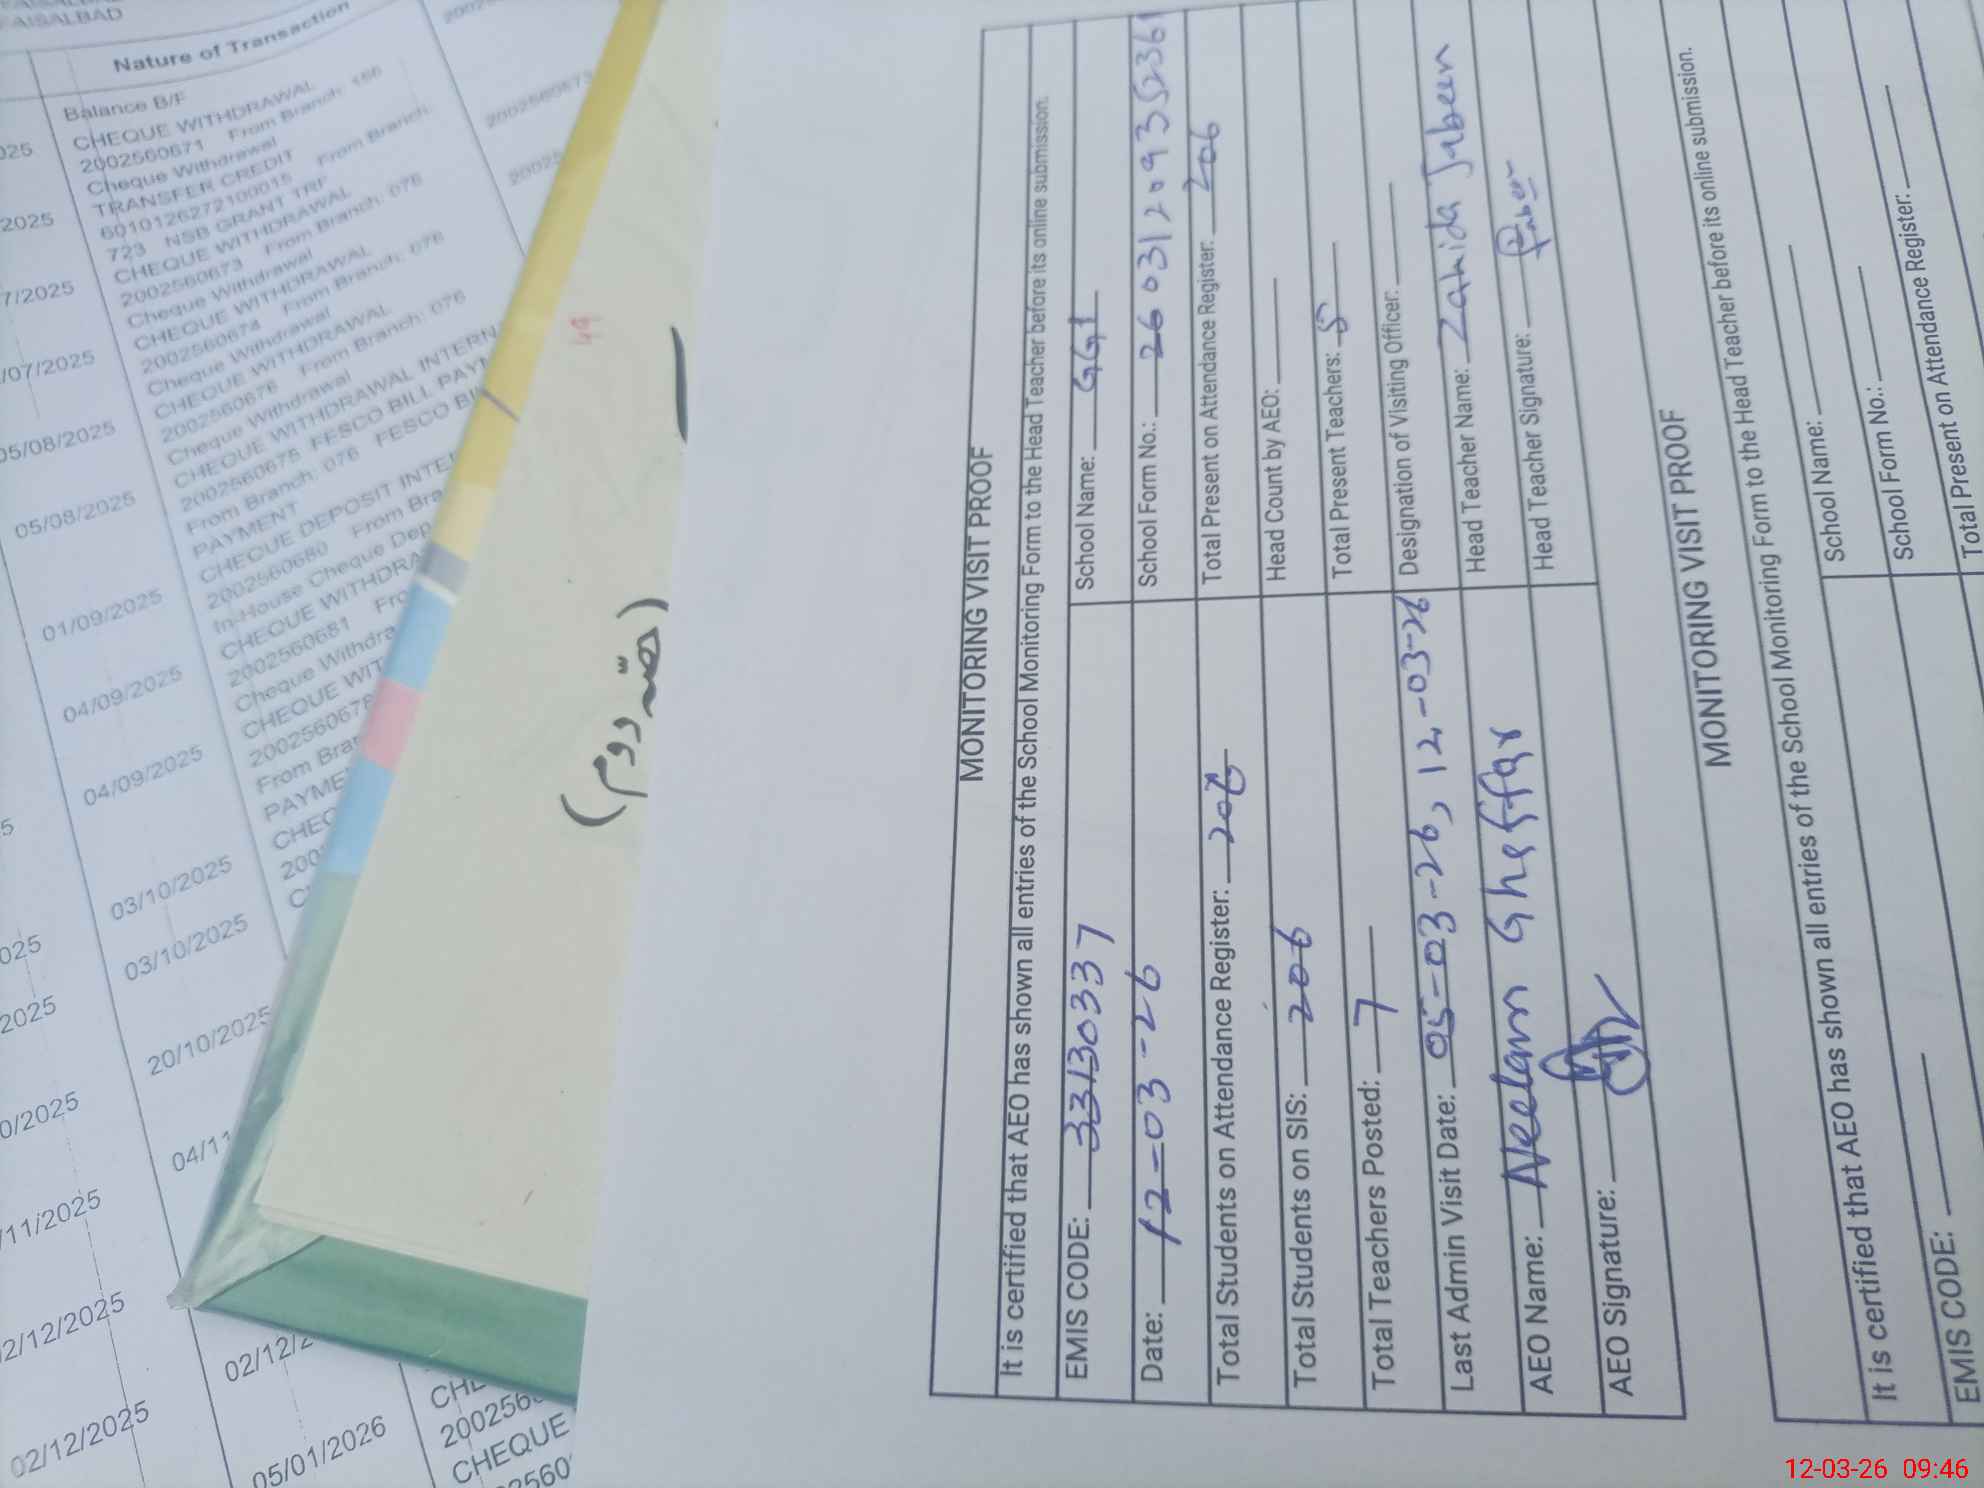 AISALBAD
Nature of Transaction
Balance B/F
CHEQUE WITHDRAWAL
2002560671 From Branch: 166
Cheque Withdrawal
TRANSFER CREDIT
6010126272100015 From Branch:
723 NSB GRANT TRF
CHEQUE WITHDRAWAL
2002560673 From Branch: 076
Cheque Withdrawal
CHEQUE WITHDRAWAL
2002560674 From Branch: 076
Cheque Withdrawal
CHEQUE WITHDRAWAL
2002560676 From Branch: 076
Cheque Withdrawal
CHEQUE WITHDRAWAL INTERN
2002560675 FESCO BILL PAYM
From Branch: 076 FESCO BI
PAYMENT
CHEQUE DEPOSIT INTE
2002560680 From Bra
In-House Cheque Dep
CHEQUE WITHDRA
2002560681 Fro
Cheque Withdra
CHEQUE WIT
2002560678
From Bra
PAYME
CHEC
200
2002560673
025
2025
7/2025
/07/2025
05/08/2025
05/08/2025
01/09/2025
04/09/2025
04/09/2025
03/10/2025
03/10/2025
20/10/2025
04/11
02/12/2
05/01/2026
025
2025
0/2025
/11/2025
2/12/2025
02/12/2025
200256
CHEQUE
2560
49
(حصّہ دوم)
MONITORING VISIT PROOF
It is certified that AEO has shown all entries of the School Monitoring Form to the Head Teacher before its online submission.
EMIS CODE: 33130337 School Name: GGI
Date: 12-03-26 School Form No.: 26031209352361
Total Students on Attendance Register: 206 Total Present on Attendance Register: 206
Total Students on SIS: 206 Head Count by AEO:
Total Teachers Posted: 7 Total Present Teachers: 5
Last Admin Visit Date: 05-03-26, 12-03-26 Designation of Visiting Officer:
AEO Name: Neelam Ghaffar Head Teacher Name: Zahida Jabeen
AEO Signature: Head Teacher Signature:
MONITORING VISIT PROOF
It is certified that AEO has shown all entries of the School Monitoring Form to the Head Teacher before its online submission.
EMIS CODE: School Name:
School Form No.:
Total Present on Attendance Register:
12-03-26 09:46